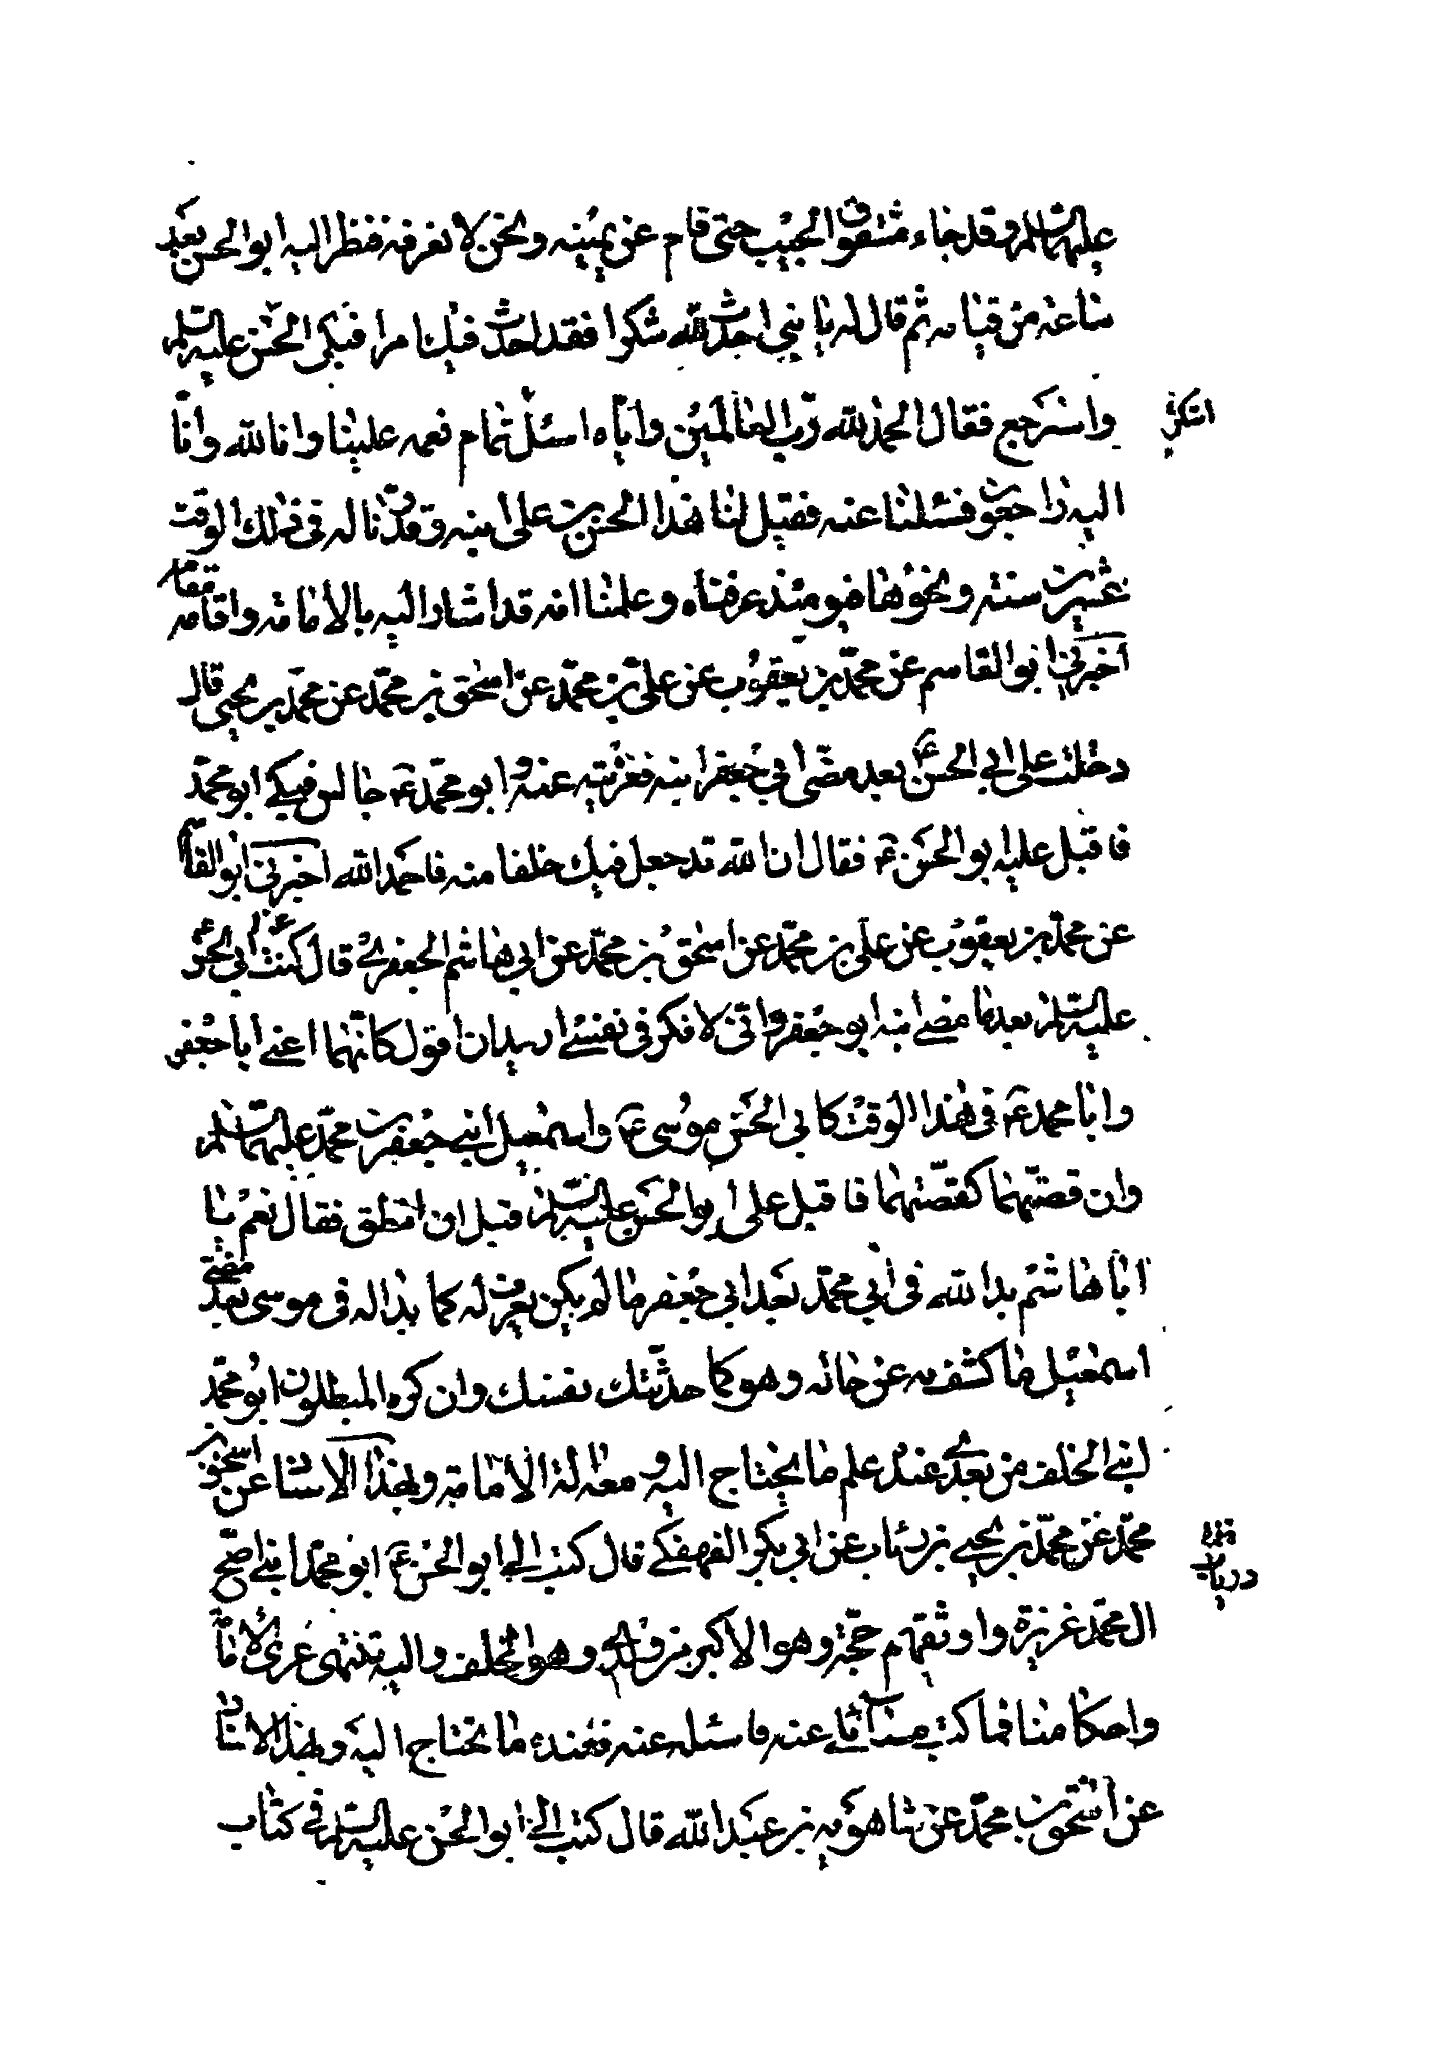 عليهما السلم وقد جاء مشقوق الجيب حتى قام عن يمينه ونحن لا نعرفه فنظر اليه ابو الحسن بعد
ساعة من قيامه ثم قال له يا بني احدث لله شكرا فقد احدث فيك امرا فبكى الحسن عليه السلم
واسترجع فقال الحمد لله رب العالمين واياه اسئل تمام نعمه علينا وانا لله وانا
اشكر
اليه راجعون فسئلنا عنه فقيل لنا هذا الحسن بن علي ابنه وقدرنا له في ذلك الوقت
عشرين سنة ونحوها فيومئذ عرفناه وعلمنا انه قد اشار اليه بالامامة واقامه مقامه
اخبرني ابو القاسم عن محمد بن يعقوب عن علي بن محمد عن اسحق بن محمد عن محمد بن يحيى قال
دخلت على ابي الحسن ع بعد مضى ابي جعفر ابنه فعزيته عنه وابو محمد ع جالس فبكى ابو محمد
فاقبل عليه ابو الحسن ع فقال ان الله قد جعل فيك خلفا منه فاحمد الله اخبرني ابو القاسم
عن محمد بن يعقوب عن علي بن محمد عن اسحق بن محمد عن ابي هاشم الجعفري قال كنت عند ابي الحسن
عليه السلم بعد ما مضى ابنه ابو جعفر واني لافكر في نفسي اريد ان اقول كانهما اعني ابا جعفر
وابا محمد ع في هذا الوقت كابي الحسن موسى ع واسمعيل ابني جعفر بن محمد عليهما السلم
وان قصتهما كقصتهما فاقبل علي ابو الحسن عليه السلم قبل ان انطق فقال نعم يا
ابا هاشم بدا لله في ابي محمد بعد ابي جعفر ما لم يكن يعرف له كما بدا له في موسى بعد مضي
اسمعيل ما كشف به عن حاله وهو كما حدثتك نفسك وان كره المبطلون ابو محمد
ابني الخلف من بعدي عنده علم ما يحتاج اليه ومعه الة الامامة وبهذا الاسناد عن اسحق بن
محمد عن محمد بن يحيى بن رئاب عن ابي بكر الفهفكي قال كتب الي ابو الحسن ع ابو محمد ابني اصح
درياب
ال محمد غريزة واوثقهم حجة وهو الاكبر من ولدي وهو الخلف واليه تنتهي عرى الامامة
واحكامنا فما كنت سائلي عنه فاسئله عنه فعنده ما تحتاج اليه وبهذا الاسناد
عن اسحق بن محمد عن شاهويه بن عبد الله قال كتب الي ابو الحسن عليه السلم في كتاب